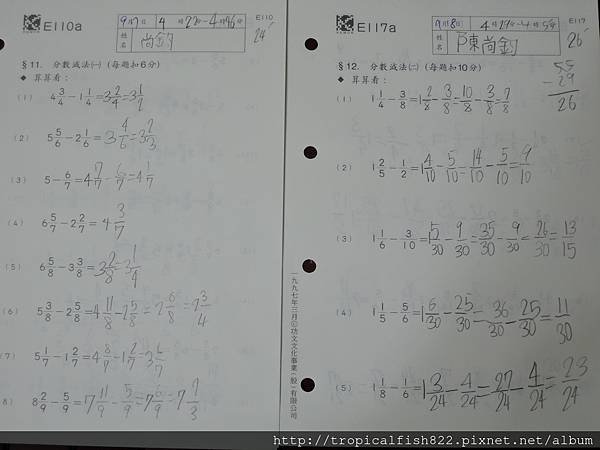 E110a
9月7日
4時22分~4時46分
E110
24'
姓名 尚鈞
§11. 分數減法(一) (每題扣6分)
◆ 算算看：
(1) 4 3/4 - 1 1/4 = 3 2/4 = 3 1/2
(2) 5 5/6 - 2 1/6 = 3 4/6 = 3 2/3
(3) 5 - 6/7 = 4 7/7 - 6/7 = 4 1/7
(4) 6 5/7 - 2 2/7 = 4 3/7
(5) 6 5/8 - 3 3/8 = 3 2/8 = 3 1/4
(6) 5 3/8 - 2 5/8 = 4 11/8 - 2 5/8 = 2 6/8 = 2 3/4
(7) 5 1/7 - 1 2/7 = 4 8/7 - 1 2/7 = 3 6/7
(8) 8 2/9 - 5/9 = 7 11/9 - 5/9 = 7 6/9 = 7 2/3
一九九七年三月©功文文化事業(股)有限公司
E117a
9月8日
4時29分~4時55分
E117
26'
姓名 陳尚鈞
55
- 29
26
§12. 分數減法(二) (每題扣10分)
◆ 算算看：
(1) 1 1/4 - 3/8 = 1 2/8 - 3/8 = 10/8 - 3/8 = 7/8
(2) 1 2/5 - 1/2 = 1 4/10 - 5/10 = 14/10 - 5/10 = 9/10
(3) 1 1/6 - 3/10 = 1 5/30 - 9/30 = 35/30 - 9/30 = 26/30 = 13/15
(4) 1 1/5 - 5/6 = 1 6/30 - 25/30 = 36/30 - 25/30 = 11/30
(5) 1 1/8 - 1/6 = 1 3/24 - 4/24 = 27/24 - 4/24 = 23/24
http://tropicalfish822.pixnet.net/album